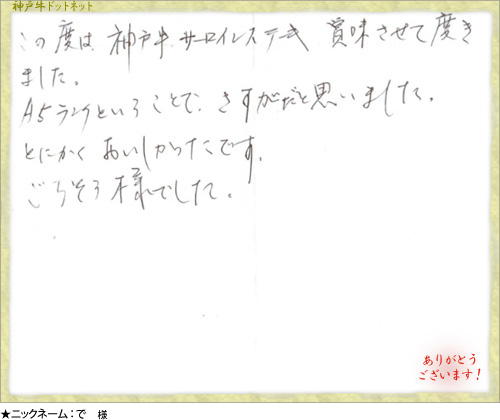 神戸牛ドットネット
この度は、神戸牛サーロインステーキ 賞味させて度き
ました。
A5ランクということで、さすがだと思いました。
とにかく おいしかったです。
ごちそう様でした。
ありがとう
ございます!
★ニックネーム:で 様